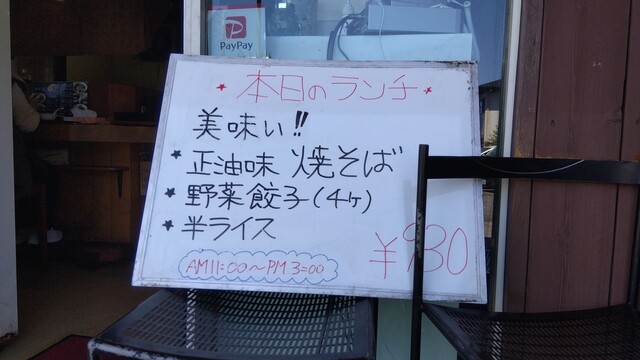 PayPay
* 本日のランチ *
美味い!!
* 正油味 焼そば
* 野菜餃子(4ヶ)
* 半ライス
¥930
AM11:00〜PM3=00